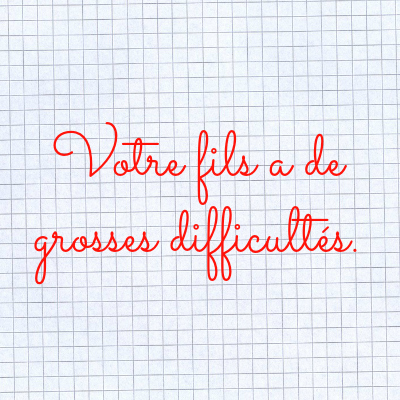 Votre fils a de
grosses difficultés.